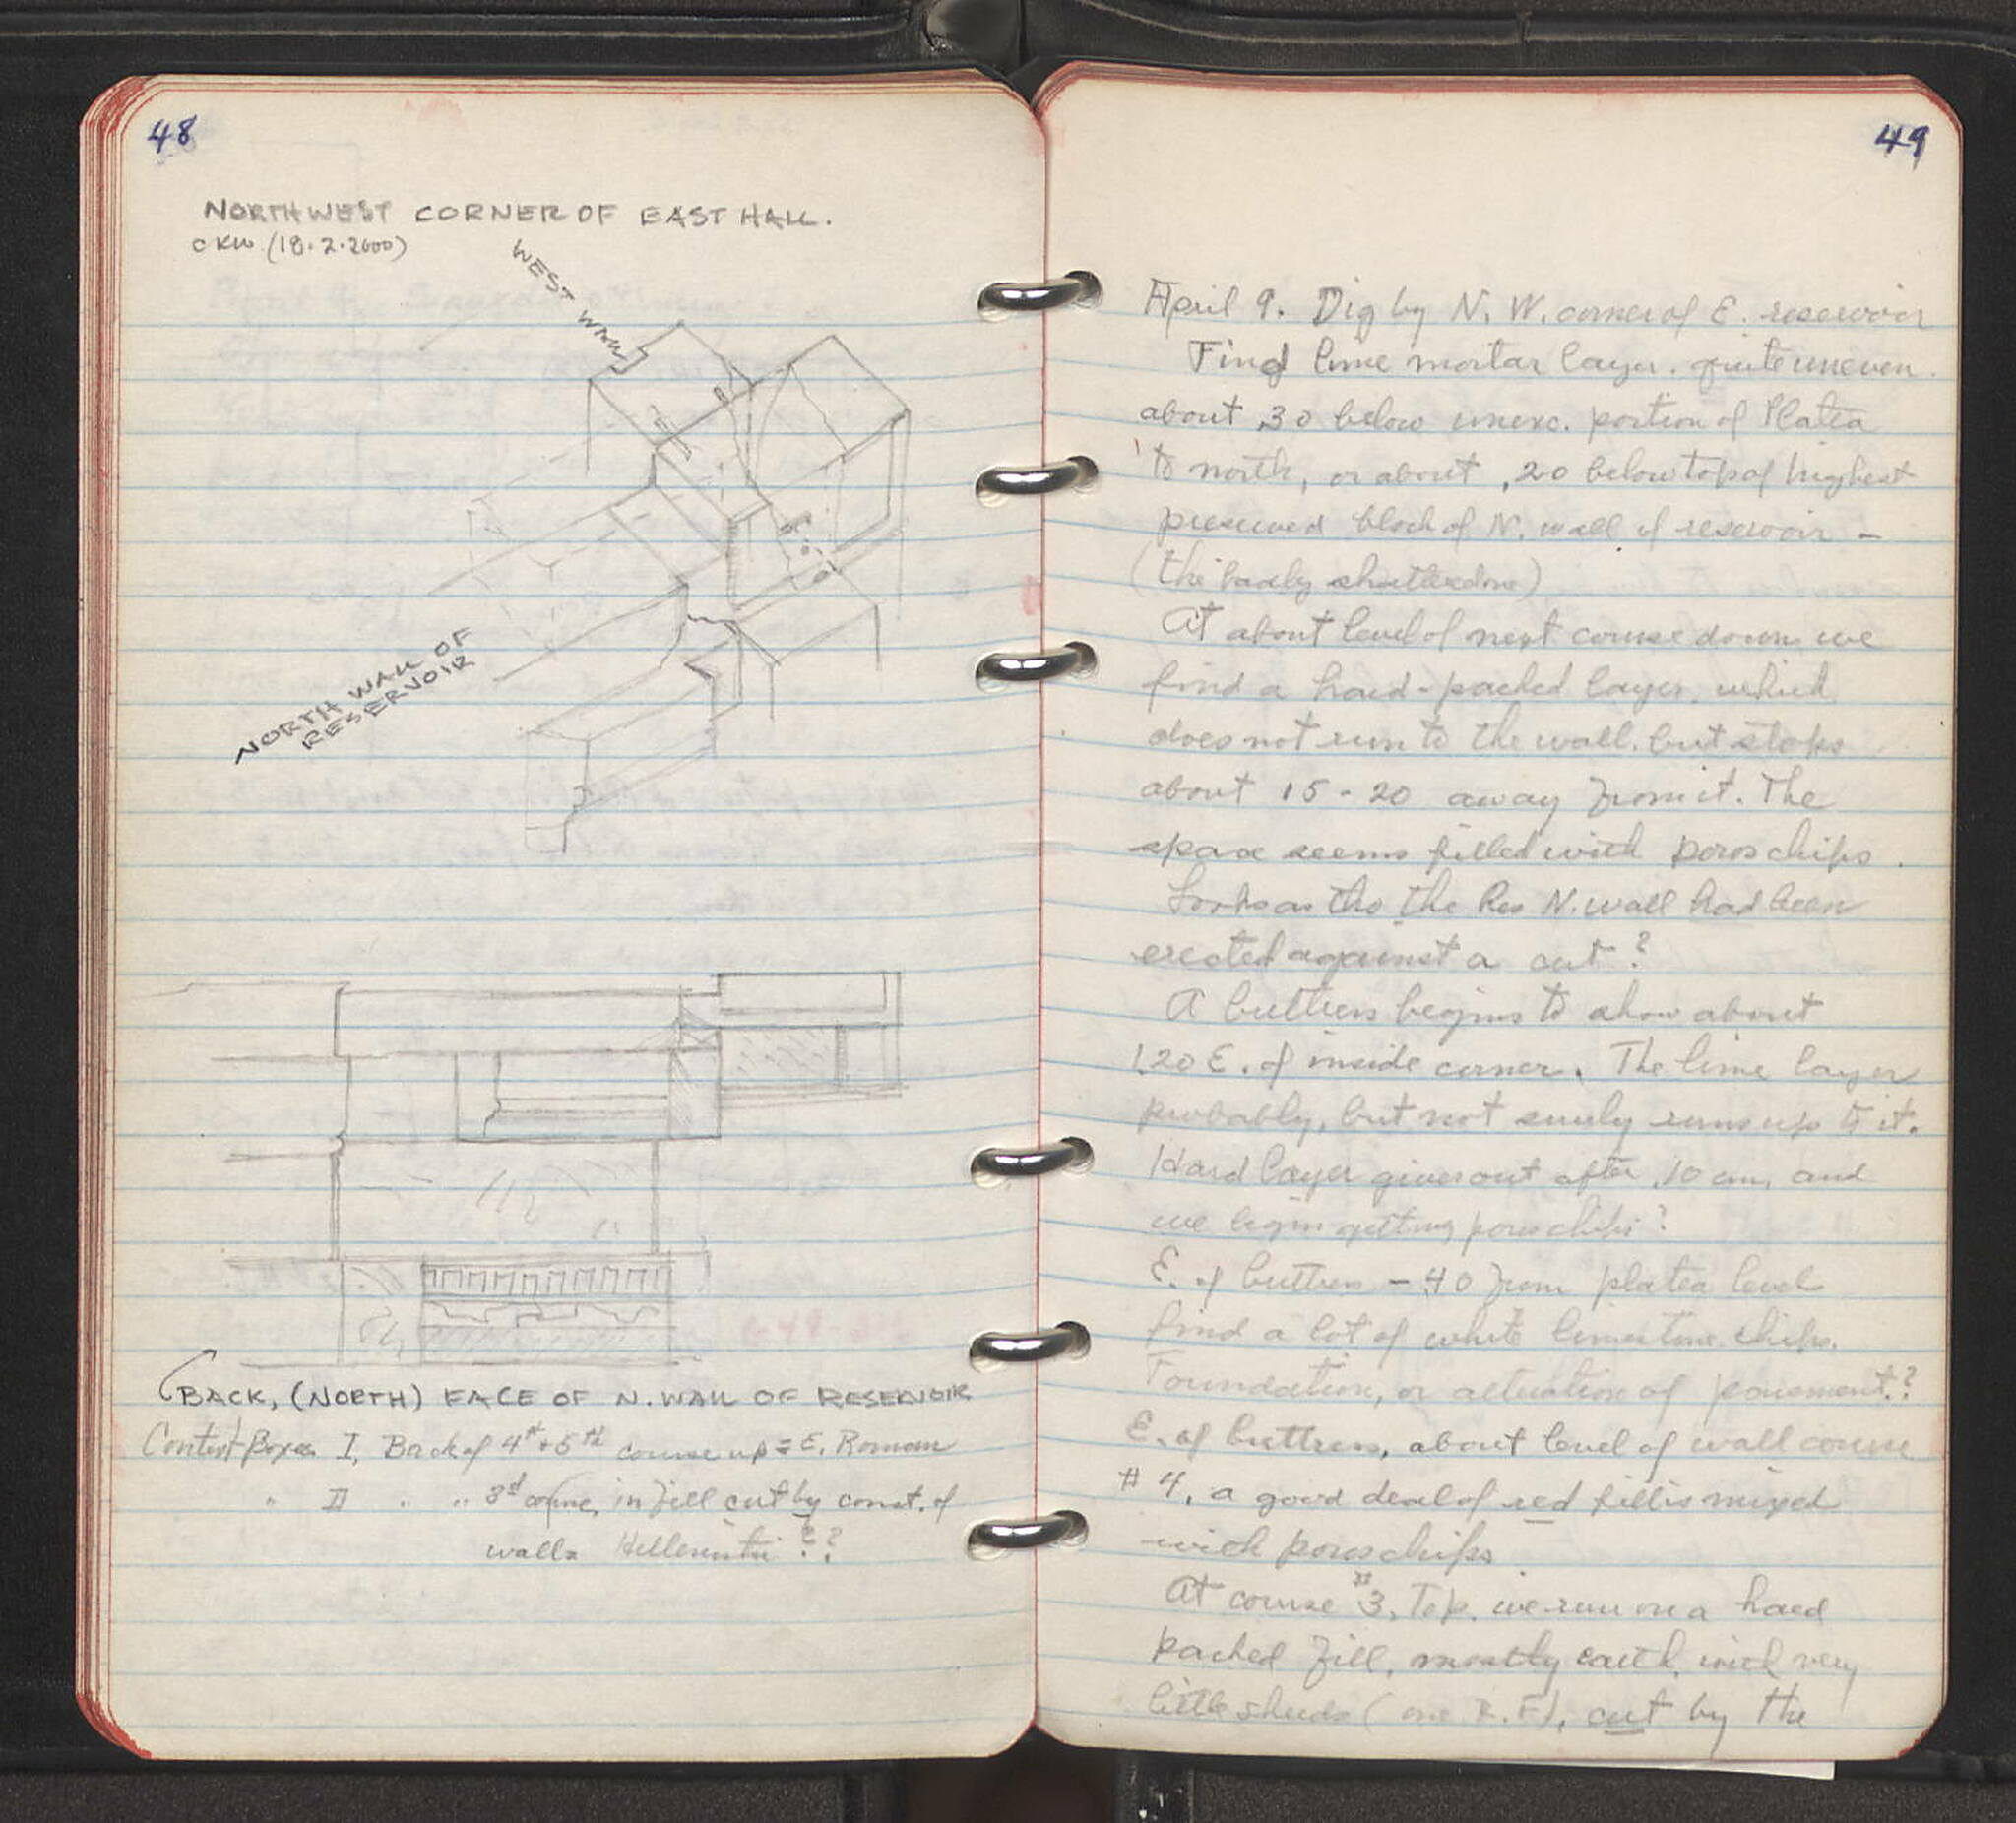 48
NORTHWEST CORNER OF EAST HALL.
CKW (18.2.2000)
WEST WALL
NORTH WALL OF
RESERVOIR
BACK, (NORTH) FACE OF N. WALL OF RESERVOIR
Context Boxes I, Back of 4th + 5th course up = E. Roman
" II " " 3rd course, in fill cut by const. of
walls Hellenistic ??
49
April 9. Dig by N. W. corner of E. reservoir
Find lime mortar layer. quite uneven.
about .30 below unexc. portion of Platea
to north, or about .20 below top of highest
preserved block of N. wall of reservoir -
(the badly shattered one)
At about level of next course down we
find a hard-packed layer, which
does not run to the wall, but stops
about 15-20 away from it. The
space seems filled with poros chips.
Looks as tho the Res N. wall had been
erected against a cut?
A buttress begins to show about
1.20 E. of inside corner. The lime layer
probably, but not surely runs up to it.
Hard layer gives out after .10 cm, and
we begin getting poros chips?
E. of buttress - 40 from platea level
find a lot of white limestone chips.
Foundation, or of pavement.?
E. of buttress, about level of wall course
# 4, a good deal of red fill is mixed
with poros chips
At course #3, Top. we run on a hard
packed fill, mostly earth, with very
little sherds (one R.F.), cut by the